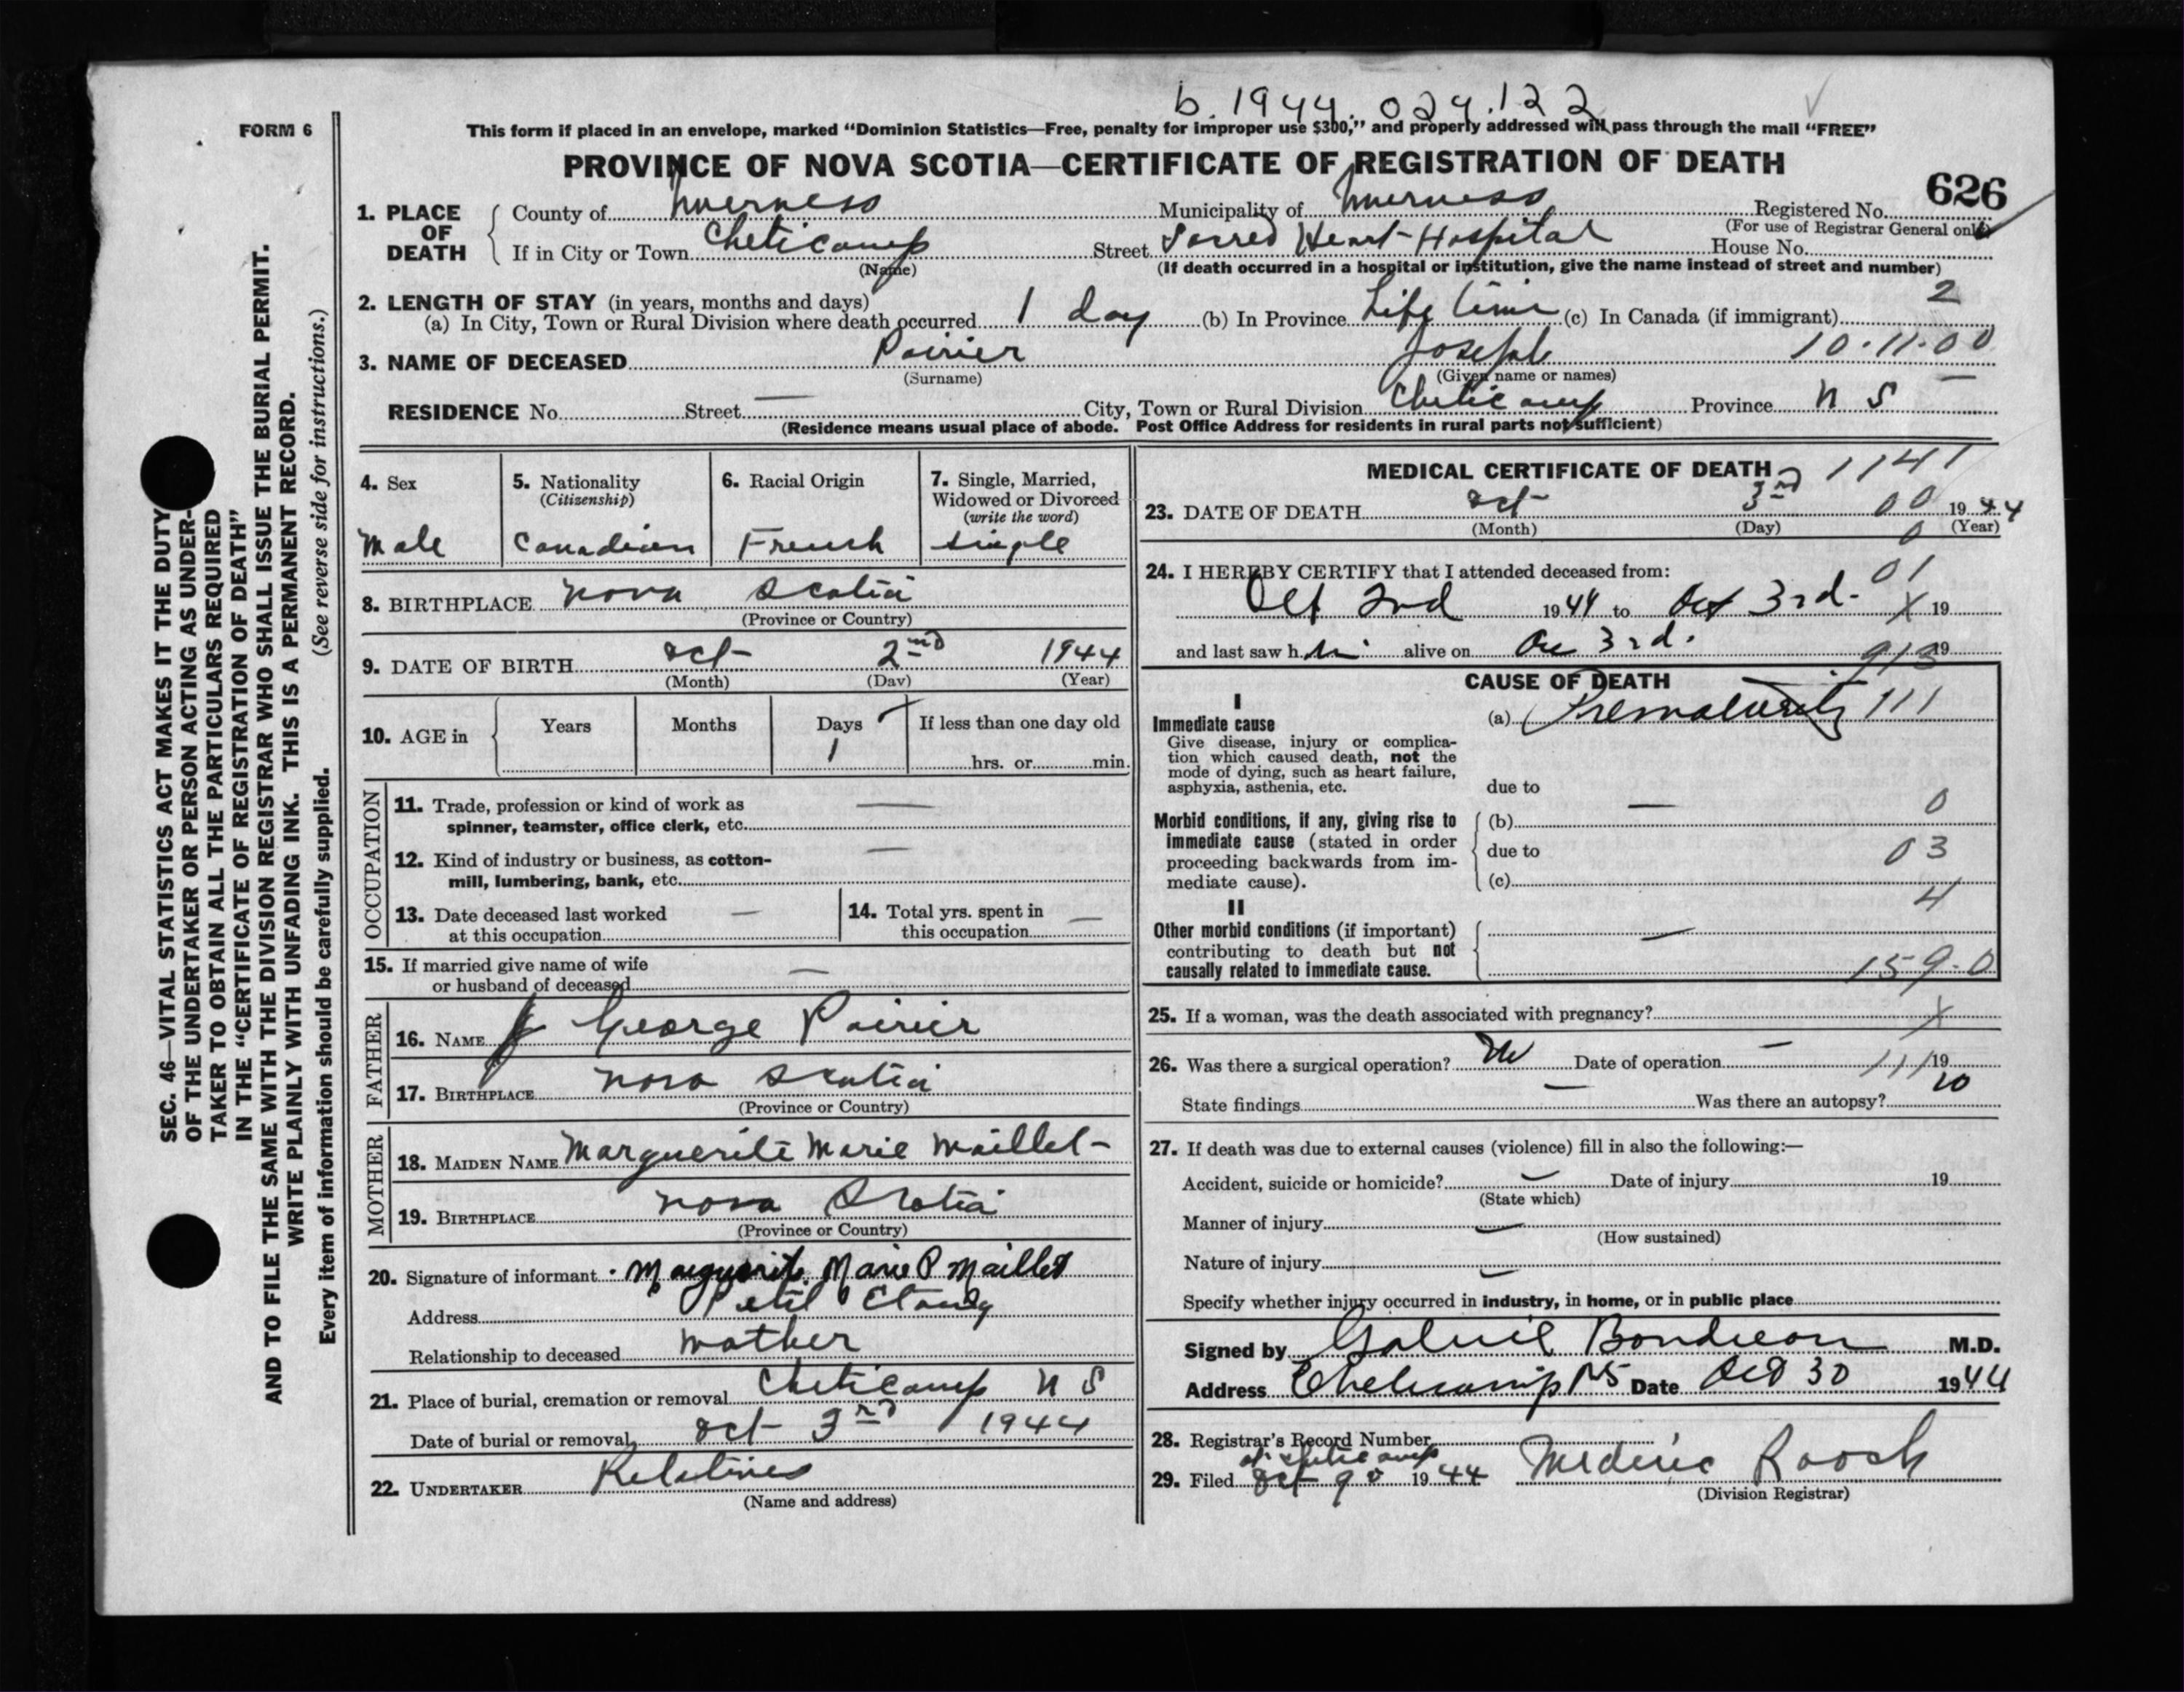 b. 1944. 024.122
FORM 6
This form if placed in an envelope, marked “Dominion Statistics—Free, penalty for improper use $300,” and properly addressed will pass through the mail “FREE”
PROVINCE OF NOVA SCOTIA—CERTIFICATE OF REGISTRATION OF DEATH
626
1. PLACE OF DEATH
County of Inverness Municipality of Inverness Registered No.
(For use of Registrar General only)
If in City or Town Cheticamp Street Sacred Heart Hospital House No.
(Name) (If death occurred in a hospital or institution, give the name instead of street and number)
2. LENGTH OF STAY (in years, months and days) 2
(a) In City, Town or Rural Division where death occurred 1 day (b) In Province Life time (c) In Canada (if immigrant)
3. NAME OF DECEASED Poirier Joseph 10.11.00
(Surname) (Given name or names)
RESIDENCE No. Street — City, Town or Rural Division Cheticamp Province N S
(Residence means usual place of abode. Post Office Address for residents in rural parts not sufficient)
4. Sex
Male
5. Nationality
(Citizenship)
Canadian
6. Racial Origin
French
7. Single, Married,
Widowed or Divorced
(write the word)
single
8. BIRTHPLACE Nova Scotia
(Province or Country)
9. DATE OF BIRTH Oct 2nd 1944
(Month) (Day) (Year)
10. AGE in Years Months Days If less than one day old
1 hrs. or min.
OCCUPATION
11. Trade, profession or kind of work as —
spinner, teamster, office clerk, etc.
12. Kind of industry or business, as cotton- —
mill, lumbering, bank, etc.
13. Date deceased last worked —
at this occupation
14. Total yrs. spent in —
this occupation
15. If married give name of wife —
or husband of deceased
FATHER
16. NAME George Poirier
17. BIRTHPLACE Nova Scotia
(Province or Country)
MOTHER
18. MAIDEN NAME Marguerite Marie Maillet
19. BIRTHPLACE Nova Scotia
(Province or Country)
20. Signature of informant Marguerite Marie P Maillet
Address Petit Etang
Relationship to deceased mother
21. Place of burial, cremation or removal Cheticamp N S
Date of burial or removal Oct 3rd 1944
22. UNDERTAKER Relatives
(Name and address)
MEDICAL CERTIFICATE OF DEATH 1141
23. DATE OF DEATH Oct 3rd 00 1944
(Month) (Day) (Year)
0
24. I HEREBY CERTIFY that I attended deceased from: 01
Oct 2nd 1944 to Oct 3rd. X 19
and last saw h im alive on 3rd. 19
CAUSE OF DEATH
I
Immediate cause (a) Prematurity 111
Give disease, injury or complica-
tion which caused death, not the
mode of dying, such as heart failure,
asphyxia, asthenia, etc. due to
Morbid conditions, if any, giving rise to (b) — 0
immediate cause (stated in order
proceeding backwards from im- due to 03
mediate cause). (c)
4
II
Other morbid conditions (if important)
contributing to death but not —
causally related to immediate cause. 159.0
25. If a woman, was the death associated with pregnancy? X
26. Was there a surgical operation? Date of operation — 111 19
State findings — Was there an autopsy? no
27. If death was due to external causes (violence) fill in also the following:—
Accident, suicide or homicide? — Date of injury 19
(State which)
Manner of injury —
(How sustained)
Nature of injury —
Specify whether injury occurred in industry, in home, or in public place
Signed by Gabriel Boudreau M.D.
Address Cheticamp NS Date Oct 30 1944
28. Registrar's Record Number
at Cheticamp
29. Filed Oct 1944 Mederic Roach
(Division Registrar)
SEC. 46—VITAL STATISTICS ACT MAKES IT THE DUTY
OF THE UNDERTAKER OR PERSON ACTING AS UNDER-
TAKER TO OBTAIN ALL THE PARTICULARS REQUIRED
IN THE “CERTIFICATE OF REGISTRATION OF DEATH”
AND TO FILE THE SAME WITH THE DIVISION REGISTRAR WHO SHALL ISSUE THE BURIAL PERMIT.
WRITE PLAINLY WITH UNFADING INK. THIS IS A PERMANENT RECORD.
Every item of information should be carefully supplied. (See reverse side for instructions.)